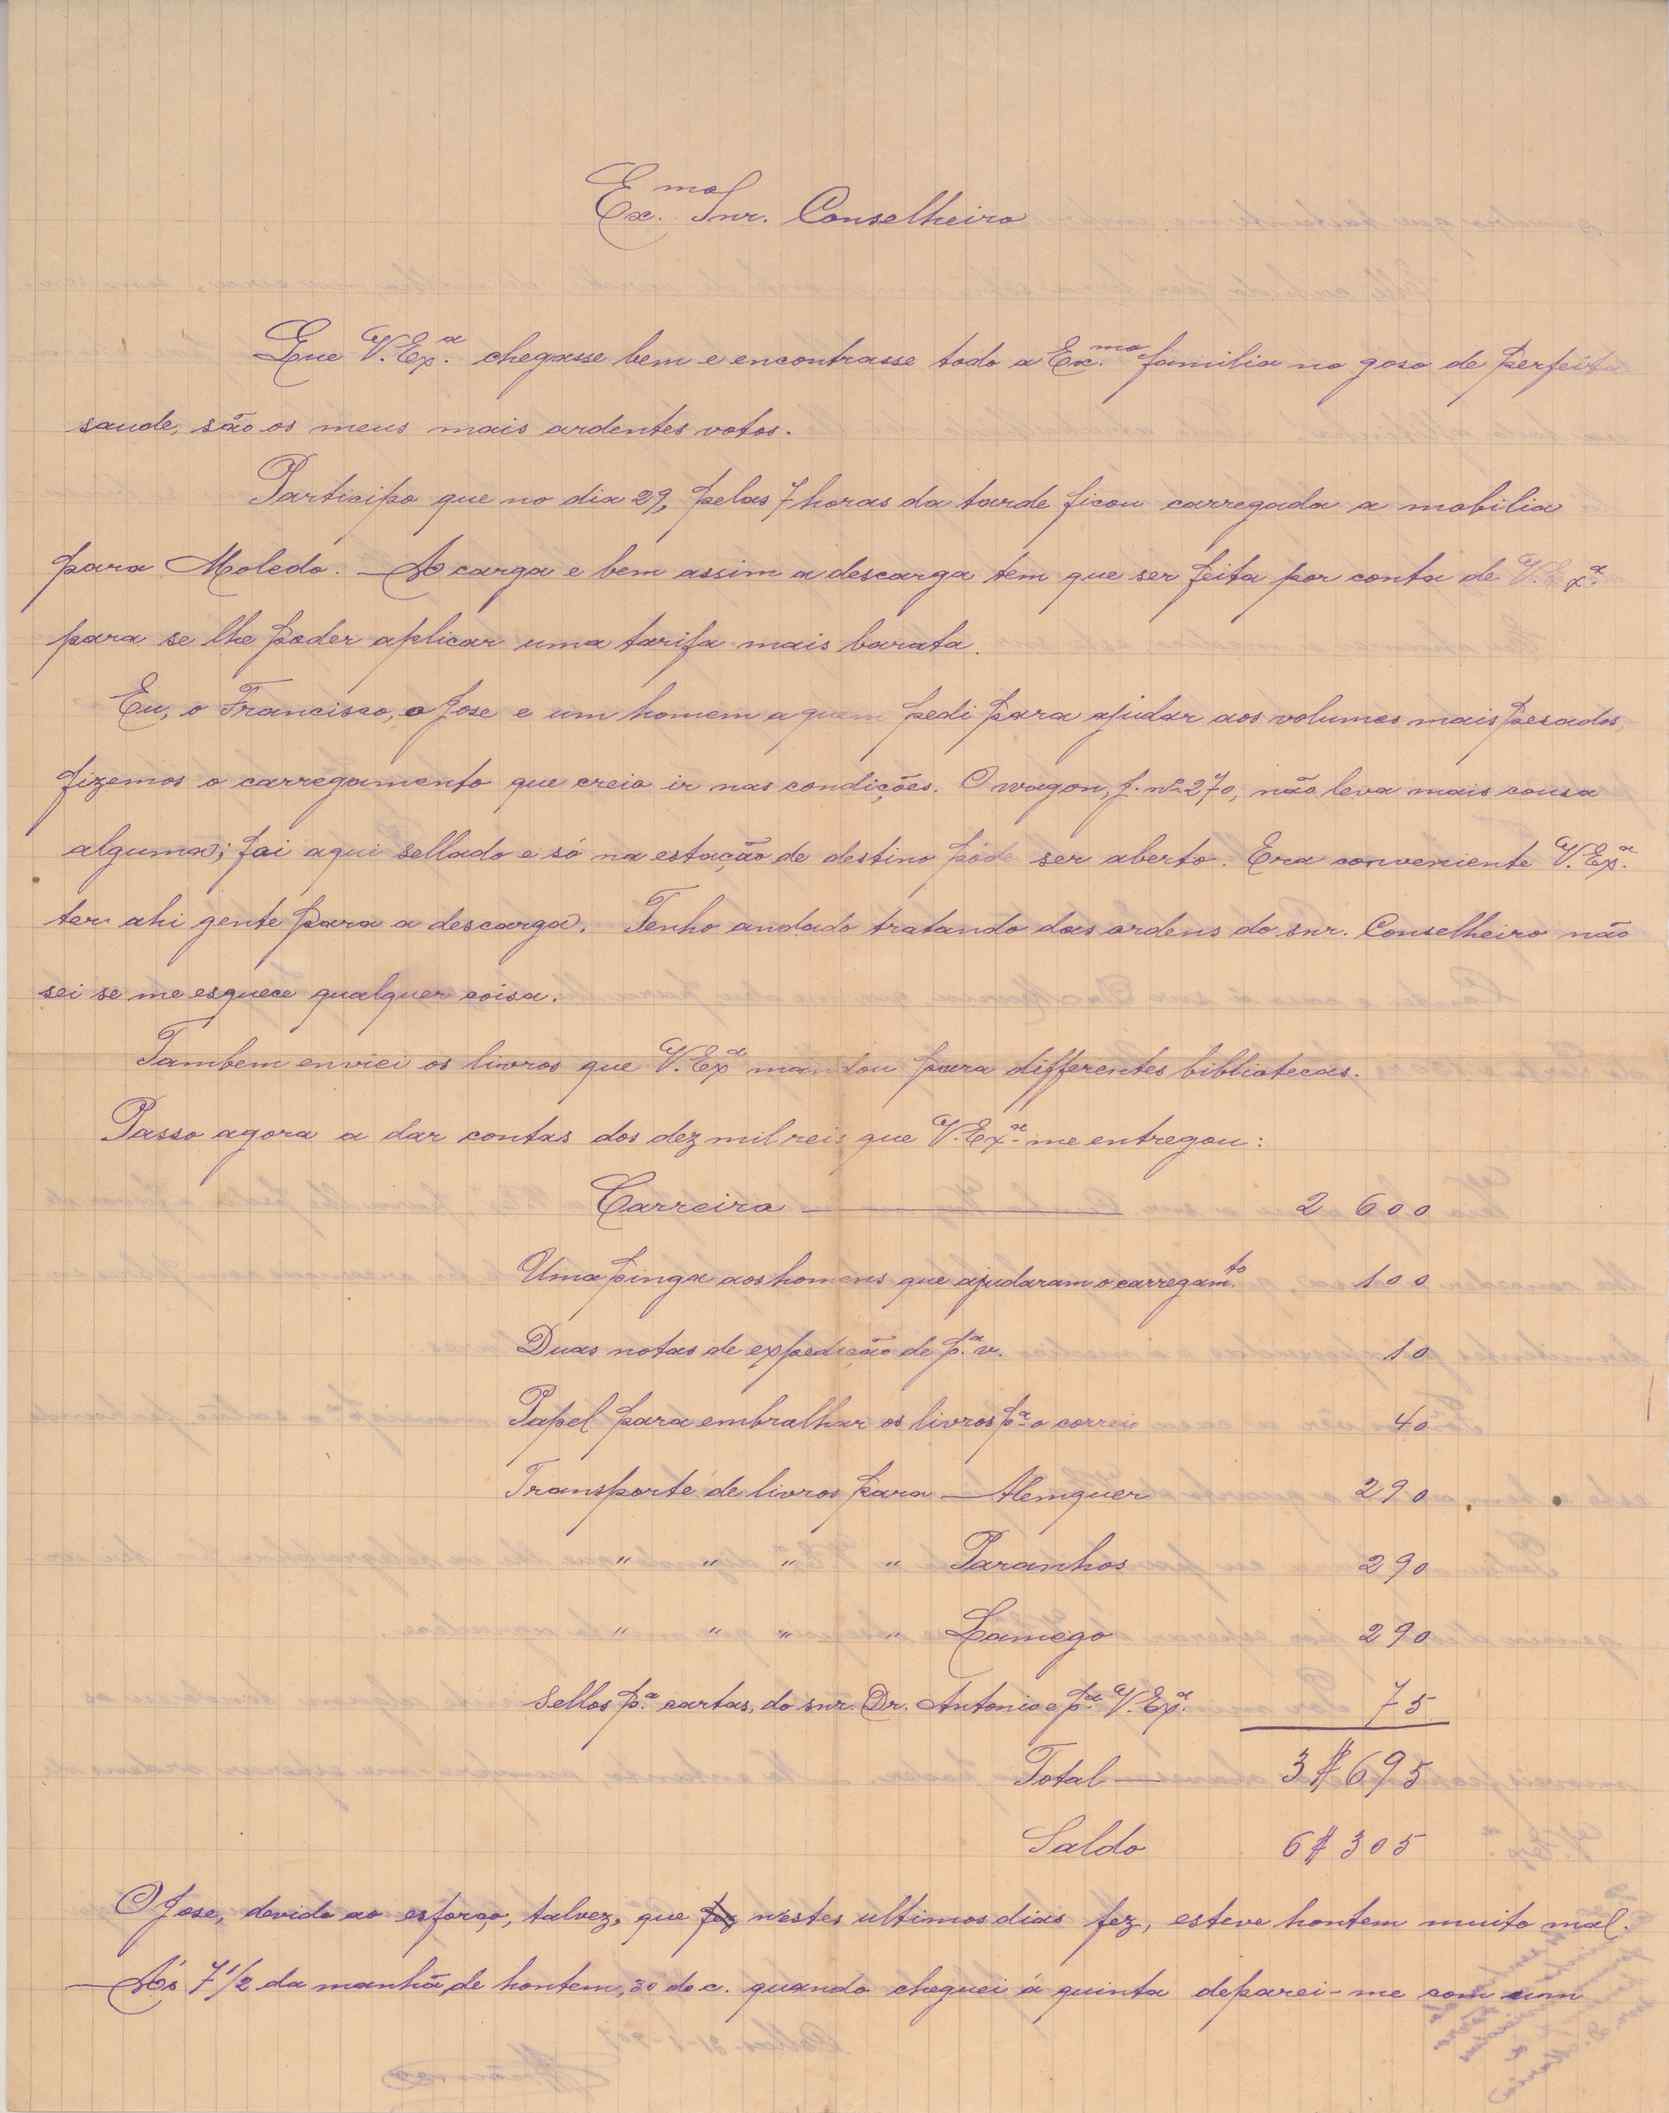 Ex.mo Snr. Conselheiro
Que V. Ex.a chegasse bem e encontrasse todo a Ex.ma familia no goso de perfeita
saude, são os meus mais ardentes votos.
Participo que no dia 29, pelas 7 horas da tarde ficou carregada a mobilia
para Moledo. A carga e bem assim a descarga têm que ser feita por conta de V. Ex.a
para se lhe poder aplicar uma tarifa mais barata.
Eu, o Francisco, o Jose e um homem a quem pedi para ajudar aos volumes mais pesados,
fizemos o carregamento que creio ir nas condições. O wagon, J. nº 270, não leva mais cousa
alguma; foi aqui sellado e só na estação de destino póde ser aberto. Era conveniente V. Ex.a
ter ahi gente para a descarga. Tenho andado tratando das ordens do snr. Conselheiro não
sei se me esquece qualquer coisa.
Tambem enviei os livros que V. Ex.a mandou para differentes bibliotecas.
Passo agora a dar contas dos dez mil reis que V. Ex.a me entregou:
Carreira 2 600
Uma pinga aos homens que ajudaram o carregam.to 100
Duas notas de expedição de p.a v. 10
Papel para embralhar os livros p.a o correio 40
Transporte de livros para Alemquer 290
" " " " Paranhos 290
" " " " Lamego 290
Sellos p.a cartas, do snr. Dr. Antonio e p.a V. Ex.a 75
Total — 3$695
Saldo 6$305
O Jose, devido ao esforço, talvez, que fez n'estes ultimos dias fez, esteve hontem muito mal.
Ás 7 1/2 da manhã de hontem, 30 do c. quando cheguei á quinta deparei-me com um